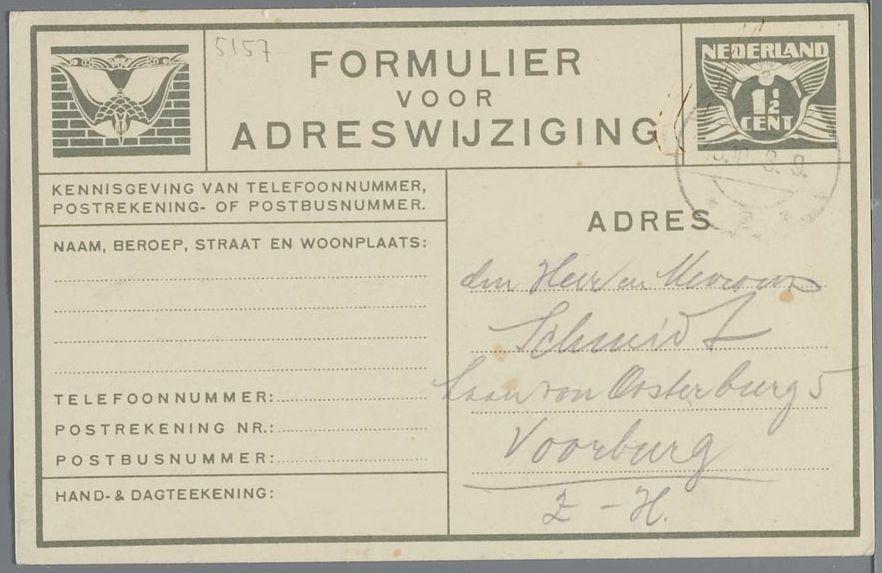 5157
FORMULIER
VOOR
ADRESWIJZIGING
NEDERLAND
1½
CENT
KENNISGEVING VAN TELEFOONNUMMER,
POSTREKENING- OF POSTBUSNUMMER.
NAAM, BEROEP, STRAAT EN WOONPLAATS:
TELEFOONNUMMER:
POSTREKENING NR.:
POSTBUSNUMMER:
HAND- & DAGTEEKENING:
ADRES
den Heer en Mevrouw
Schmidt
Laan van Oosterburg 5
Voorburg
Z-H.